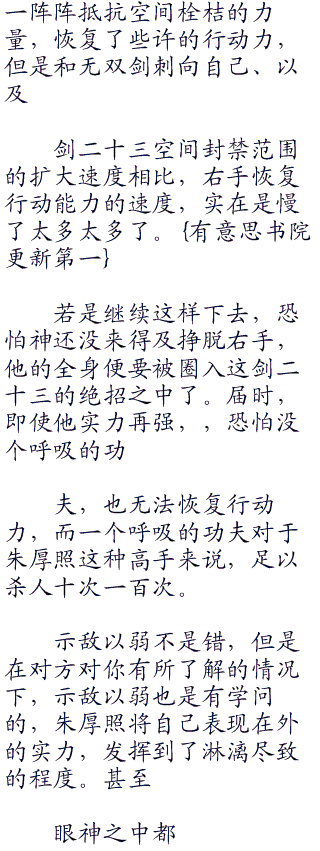 一阵阵抵抗空间栓桔的力
量，恢复了些许的行动力，
但是和无双剑刺向自己、以
及
剑二十三空间封禁范围
的扩大速度相比，右手恢复
行动能力的速度，实在是慢
了太多太多了。{有意思书院
更新第一}
若是继续这样下去，恐
怕神还没来得及挣脱右手，
他的全身便要被圈入这剑二
十三的绝招之中了。届时，
即使他实力再强，，恐怕没
个呼吸的功
夫，也无法恢复行动
力，而一个呼吸的功夫对于
朱厚照这种高手来说，足以
杀人十次一百次。
示敌以弱不是错，但是
在对方对你有所了解的情况
下，示敌以弱也是有学问
的，朱厚照将自己表现在外
的实力，发挥到了淋漓尽致
的程度。甚至
眼神之中都